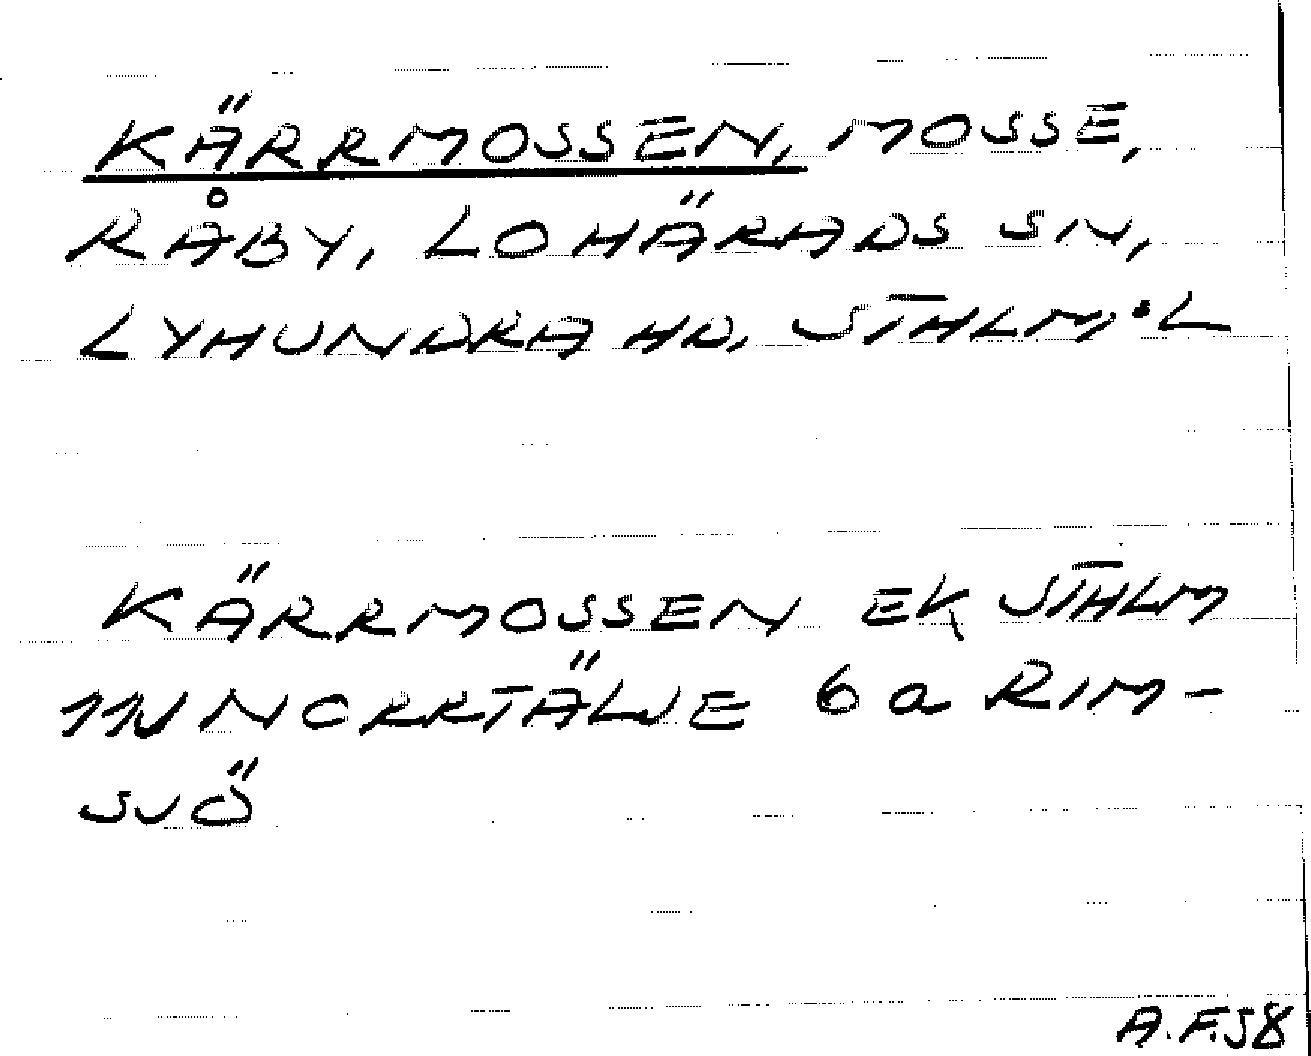 KÄRRMOSSEN, MOSSE,
RÅBY, LOHÄRADS SN,
LYHUNDRA HD, STHLM:L
KÄRRMOSSEN EK STHLM
11J NORRTÄLJE 6a RIM-
SJÖ
A.F.58